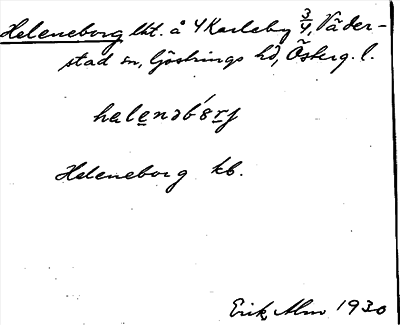 Heleneborg lht. å 4 Karleby 3/4, Väder-
stad sn, Göstrings hd, Österg. l.
helenəbórj
Heleneborg kb.
Erik Alm 1930